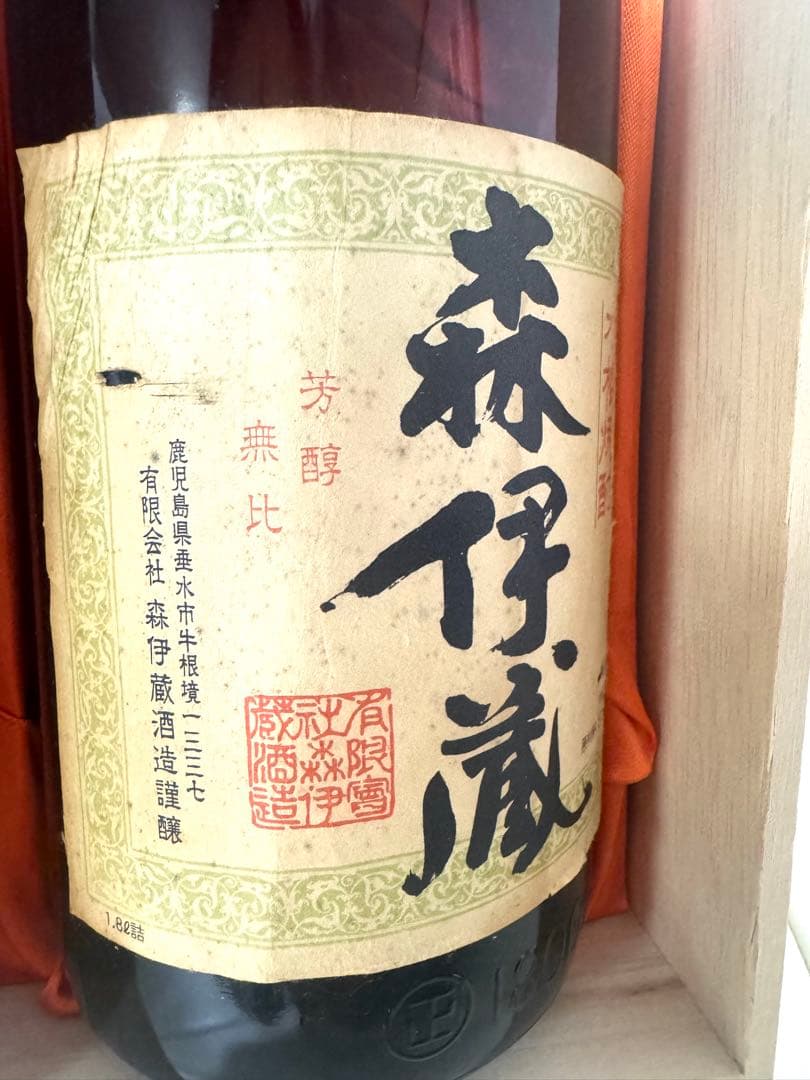 森伊蔵
芳醇
無比
鹿児島県垂水市牛根境一三三七
有限会社 森伊蔵酒造謹醸
有限會
社森伊
蔵酒造
1.8ℓ詰
正 180